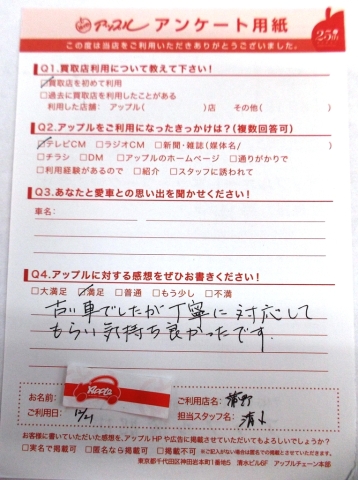 アップル アンケート用紙
25th
この度は当店をご利用いただきありがとうございました。
Q1.買取店利用について教えて下さい!
☑買取店を初めて利用
□過去に買取店を利用したことがある
利用した店舗： アップル( )店 その他( )
Q2.アップルをご利用になったきっかけは?(複数回答可)
☑テレビCM □ラジオCM □新聞・雑誌(媒体名/ )
□チラシ □DM □アップルのホームページ □通りがかりで
□利用経験があるので □紹介 □スタッフに誘われて
Q3.あなたと愛車との思い出を聞かせください!
車名：
Q4.アップルに対する感想をぜひお書きください!
□大満足 ☑満足 □普通 □もう少し □不満
古い車でしたが丁寧に対応して
もらい気持ち良かったです.
お名前:
Apple
ご利用店名:
ご利用日:
担当スタッフ名: 清水
お客様に書いていただいた感想を、アップルHPや広告に掲載させていただいてもよろしいでしょうか?
□実名で掲載可 □匿名なら掲載可 □掲載不可 ※ご記入がない場合は匿名での掲載とさせていただきます。
東京都千代田区神田岩本町1番地5 清水ビル6F アップルチェーン本部